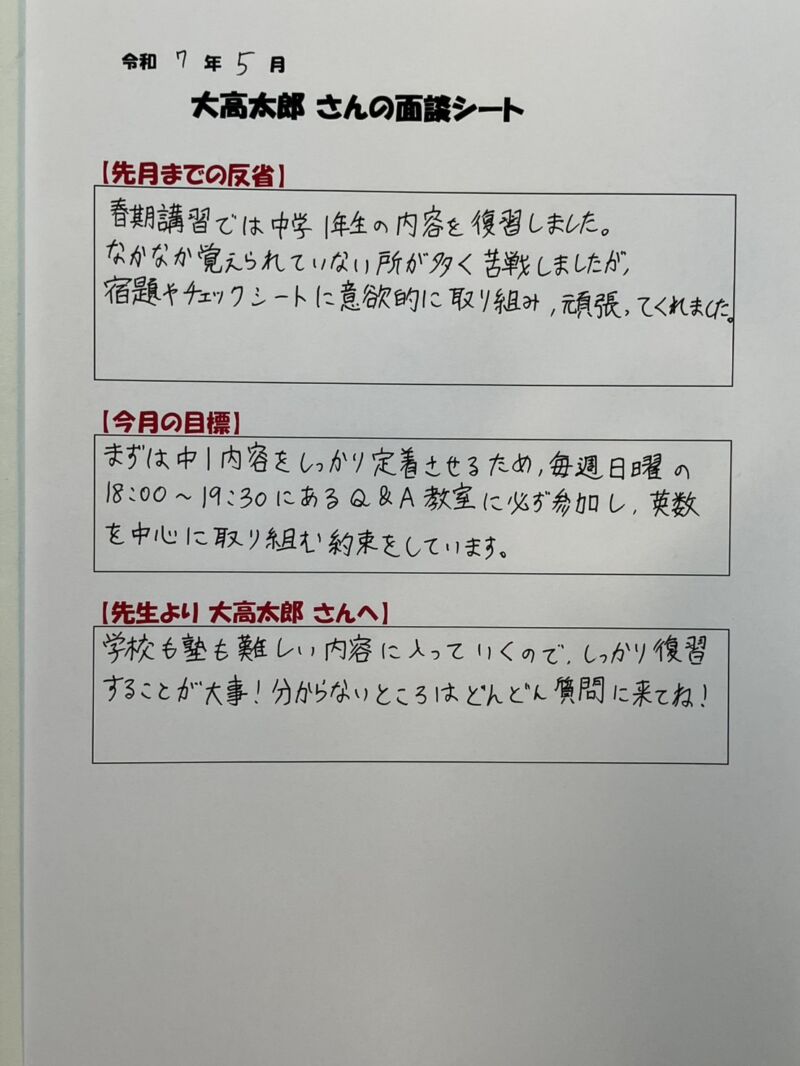 令和 7 年 5 月
大高太郎 さんの面談シート
【先月までの反省】
春期講習では中学1年生の内容を復習しました。
なかなか覚えられていない所が多く苦戦しましたが、
宿題やチェックシートに意欲的に取り組み,頑張ってくれました。
【今月の目標】
まずは中1内容をしっかり定着させるため,毎週日曜の
18:00～19:30にあるQ&A教室に必ず参加し,英数
を中心に取り組む約束をしています。
【先生より 大高太郎 さんへ】
学校も塾も難しい内容に入っていくので,しっかり復習
することが大事!分からないところはどんどん質問に来てね!